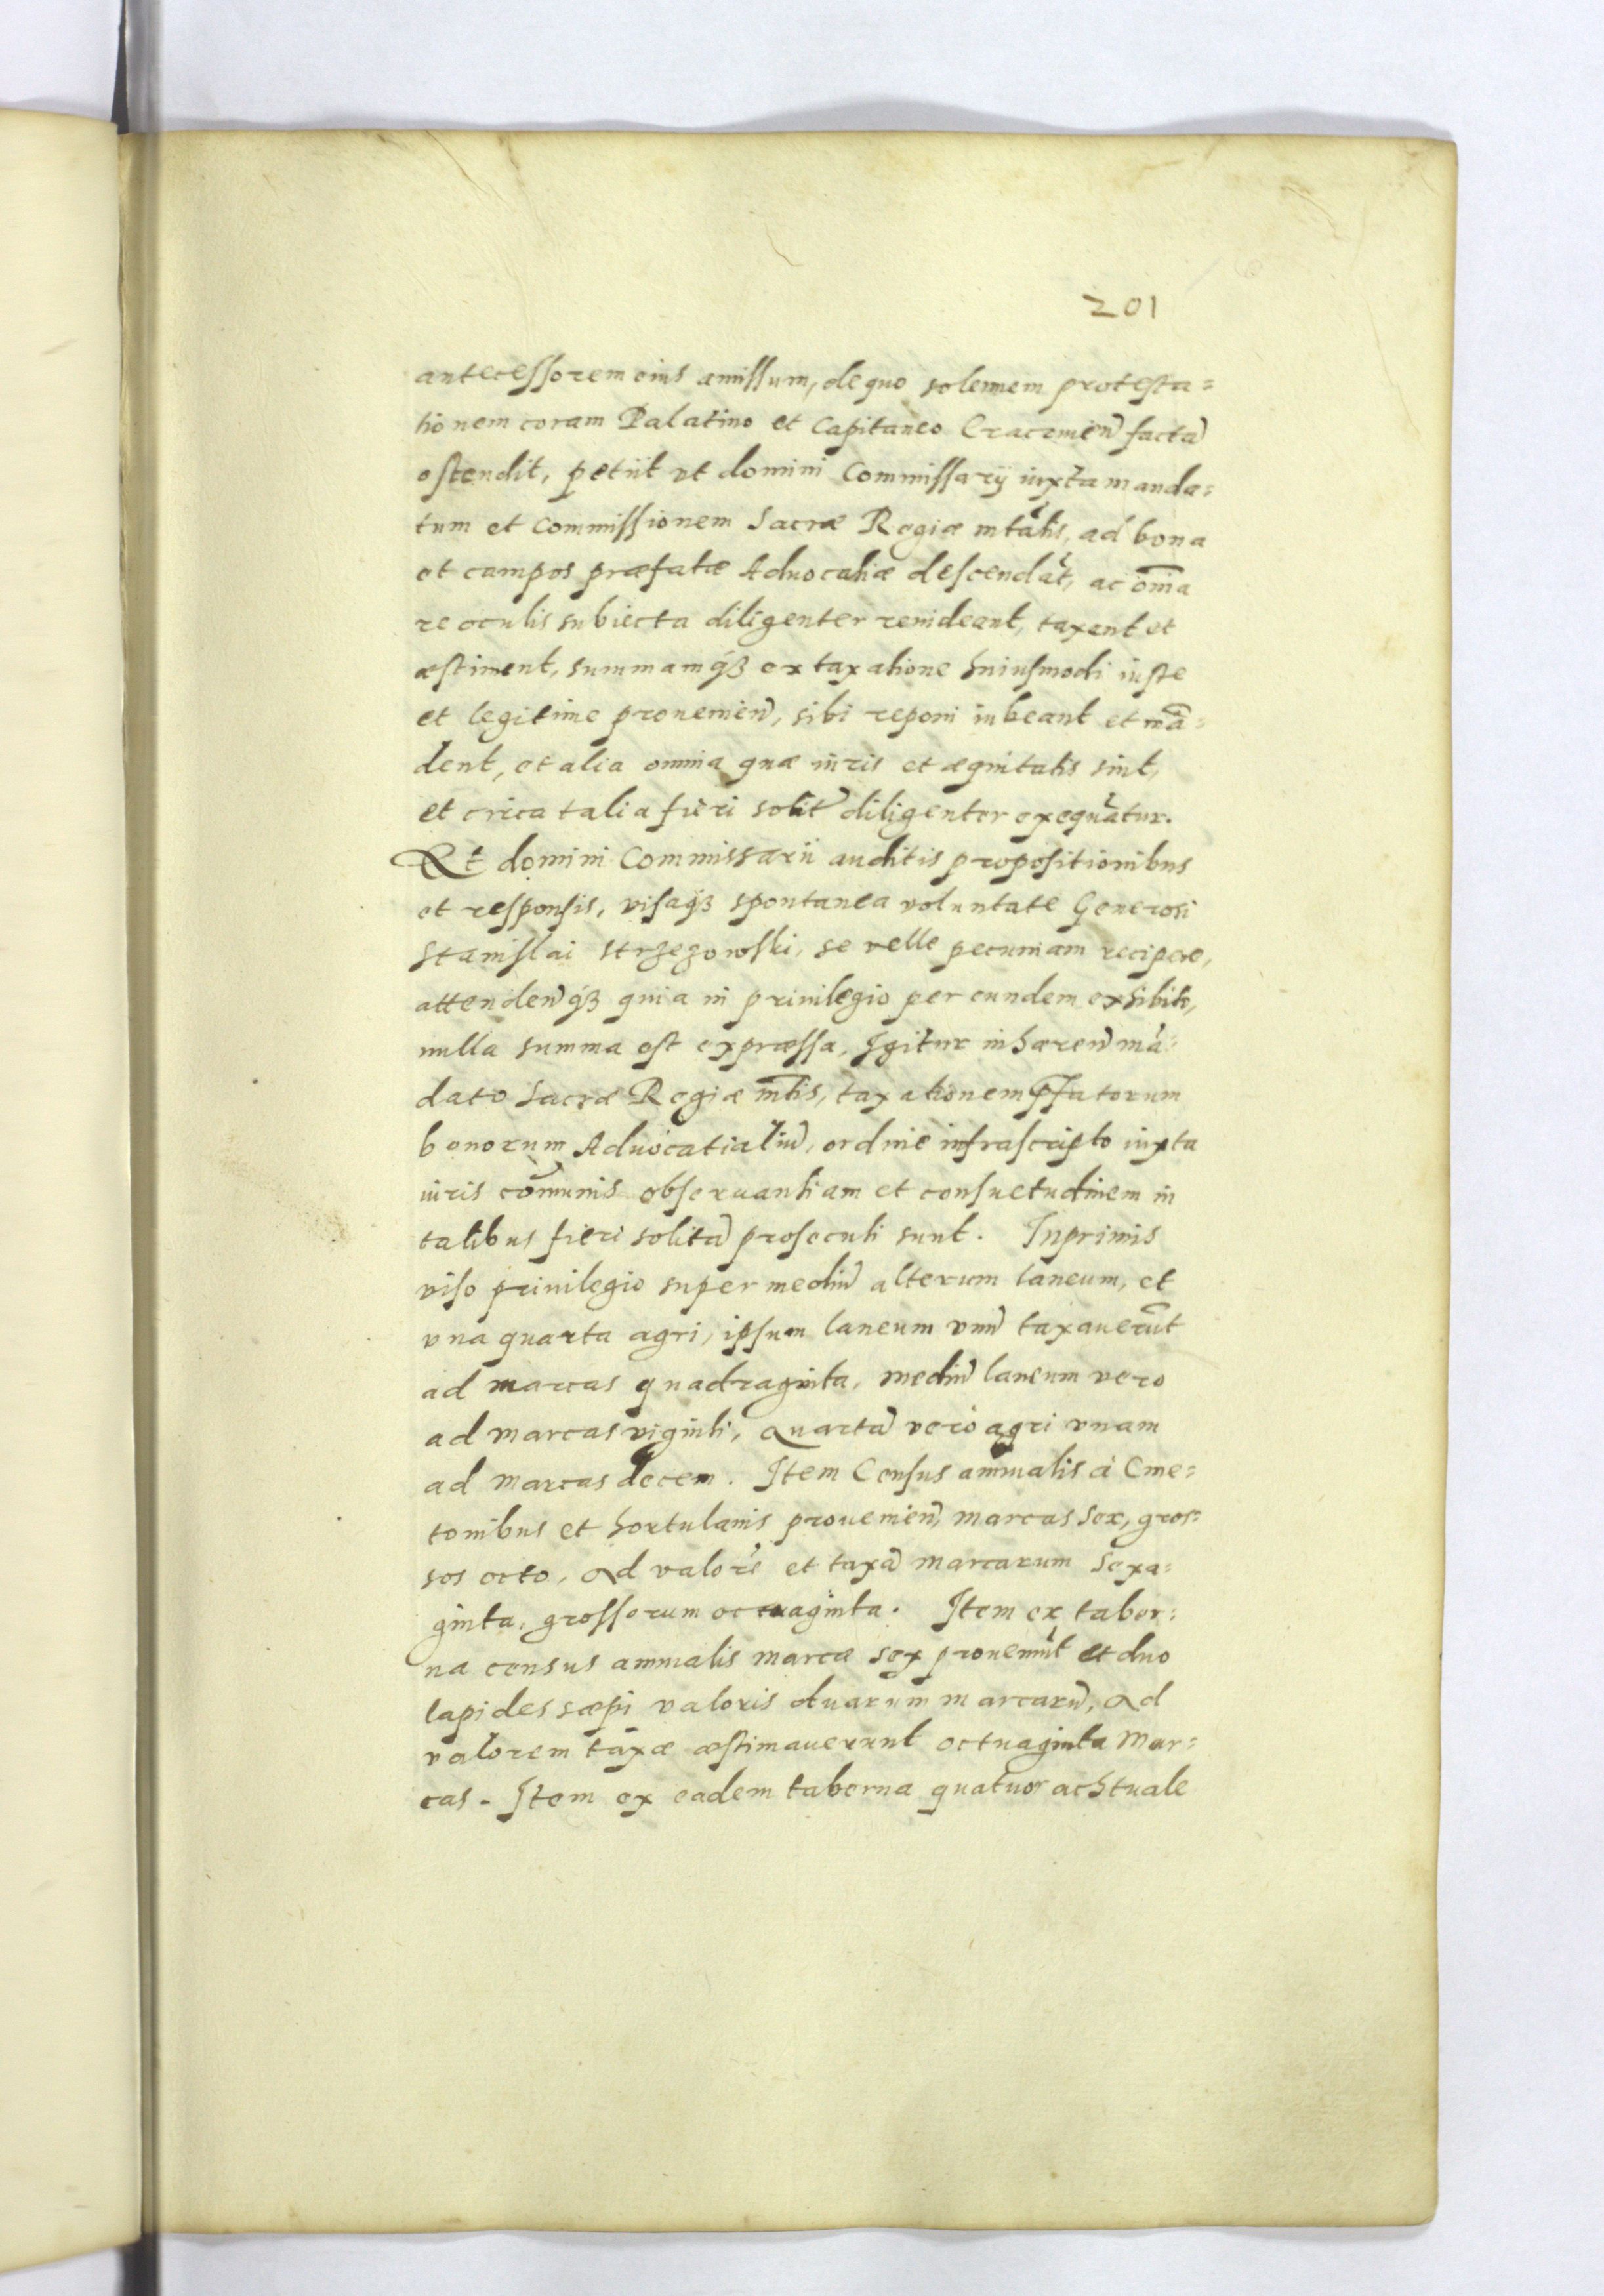 201
antecessorem eius amissum, de quo solennem protesta=
tionem coram Palatino et Capitaneo Cracovien̄ factā
ostendit, petiit vt domini Commissarij iuxta manda=
tum et commissionem Sacræ Regiæ mtātis, ad bona
et campos præfatæ Aduocatiæ descendāt, ac om̄ia
re oculis subiecta diligenter reuideant, taxent et
æstiment, summamq́ꝫ ex taxatione huiusmodi iuste
et legitime prouenien̄, sibi reponi iubeant et mā=
dent, et alia omnia quæ iuris et æquitatis sint,
et circa talia fieri solit̄ diligenter exequātur.
Et domini Commissarii auditis propositionibus
et responsis, visaq́ꝫ spontanea voluntate Generosi
Stanislai Strzezowski, se velle pecuniam recipere,
attenden̄q́ꝫ quia in priuilegio per eundem exhibito,
nulla summa est expræssa, Igitur inhæren̄ mā=
dato Sacræ Regiæ mt̄is, taxationem p̄fatorum
bonorum Aduocatialiū, ordine infrascripto iuxta
iuris com̄unis obseruantiam et consuetudinem in
talibus fieri solitā prosecuti sunt. Inprimis
viso priuilegio super mediū alterum laneum, et
vna quarta agri, ipsum laneum vnū taxauerūt
ad marcas quadraginta, mediū laneum vero
ad marcas viginti, Quartā vero agri vnam
ad marcas decem. Item Census annualis à Cme=
tonibus et hortulanis prouenien̄, marcas sex, gros=
sos octo, Ad valorē et taxā marcarum sexa=
ginta, grossorum octuaginta. Item ex taber=
na census annualis marcæ sex proueniūt et duo
lapides sæpi valoris duarum marcarū, Ad
valorem taxæ æstimauerunt octuaginta Mar=
cas. Item ex eadem taberna quatuor achtuale